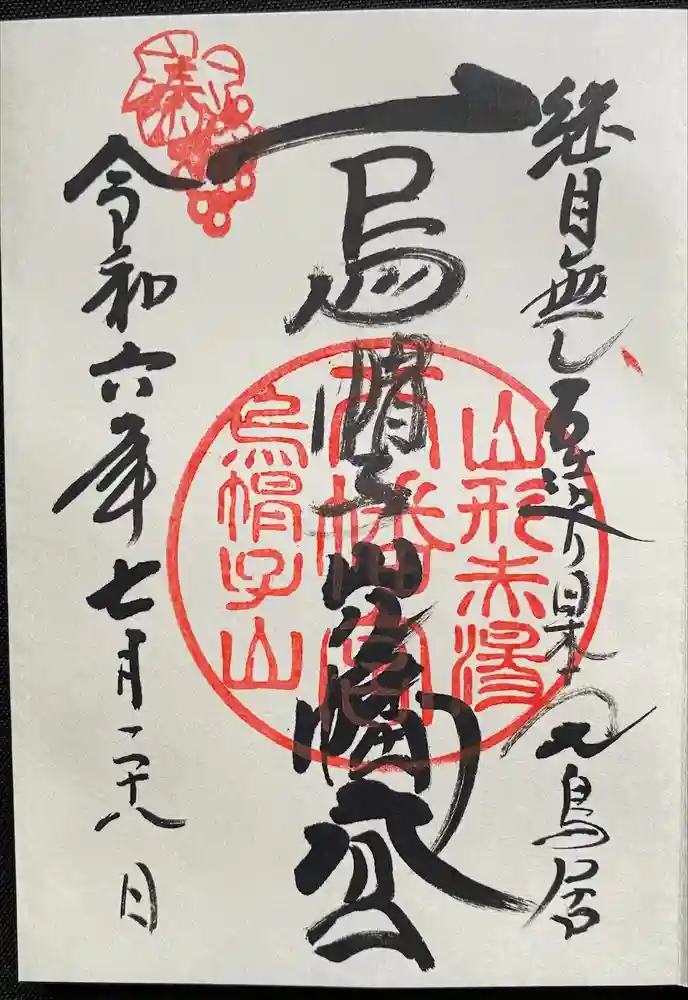 継目無し石造り日本一大鳥居
烏帽子山八幡宮
令和六年七月二十八日
山形赤湯
八幡宮
烏帽子山